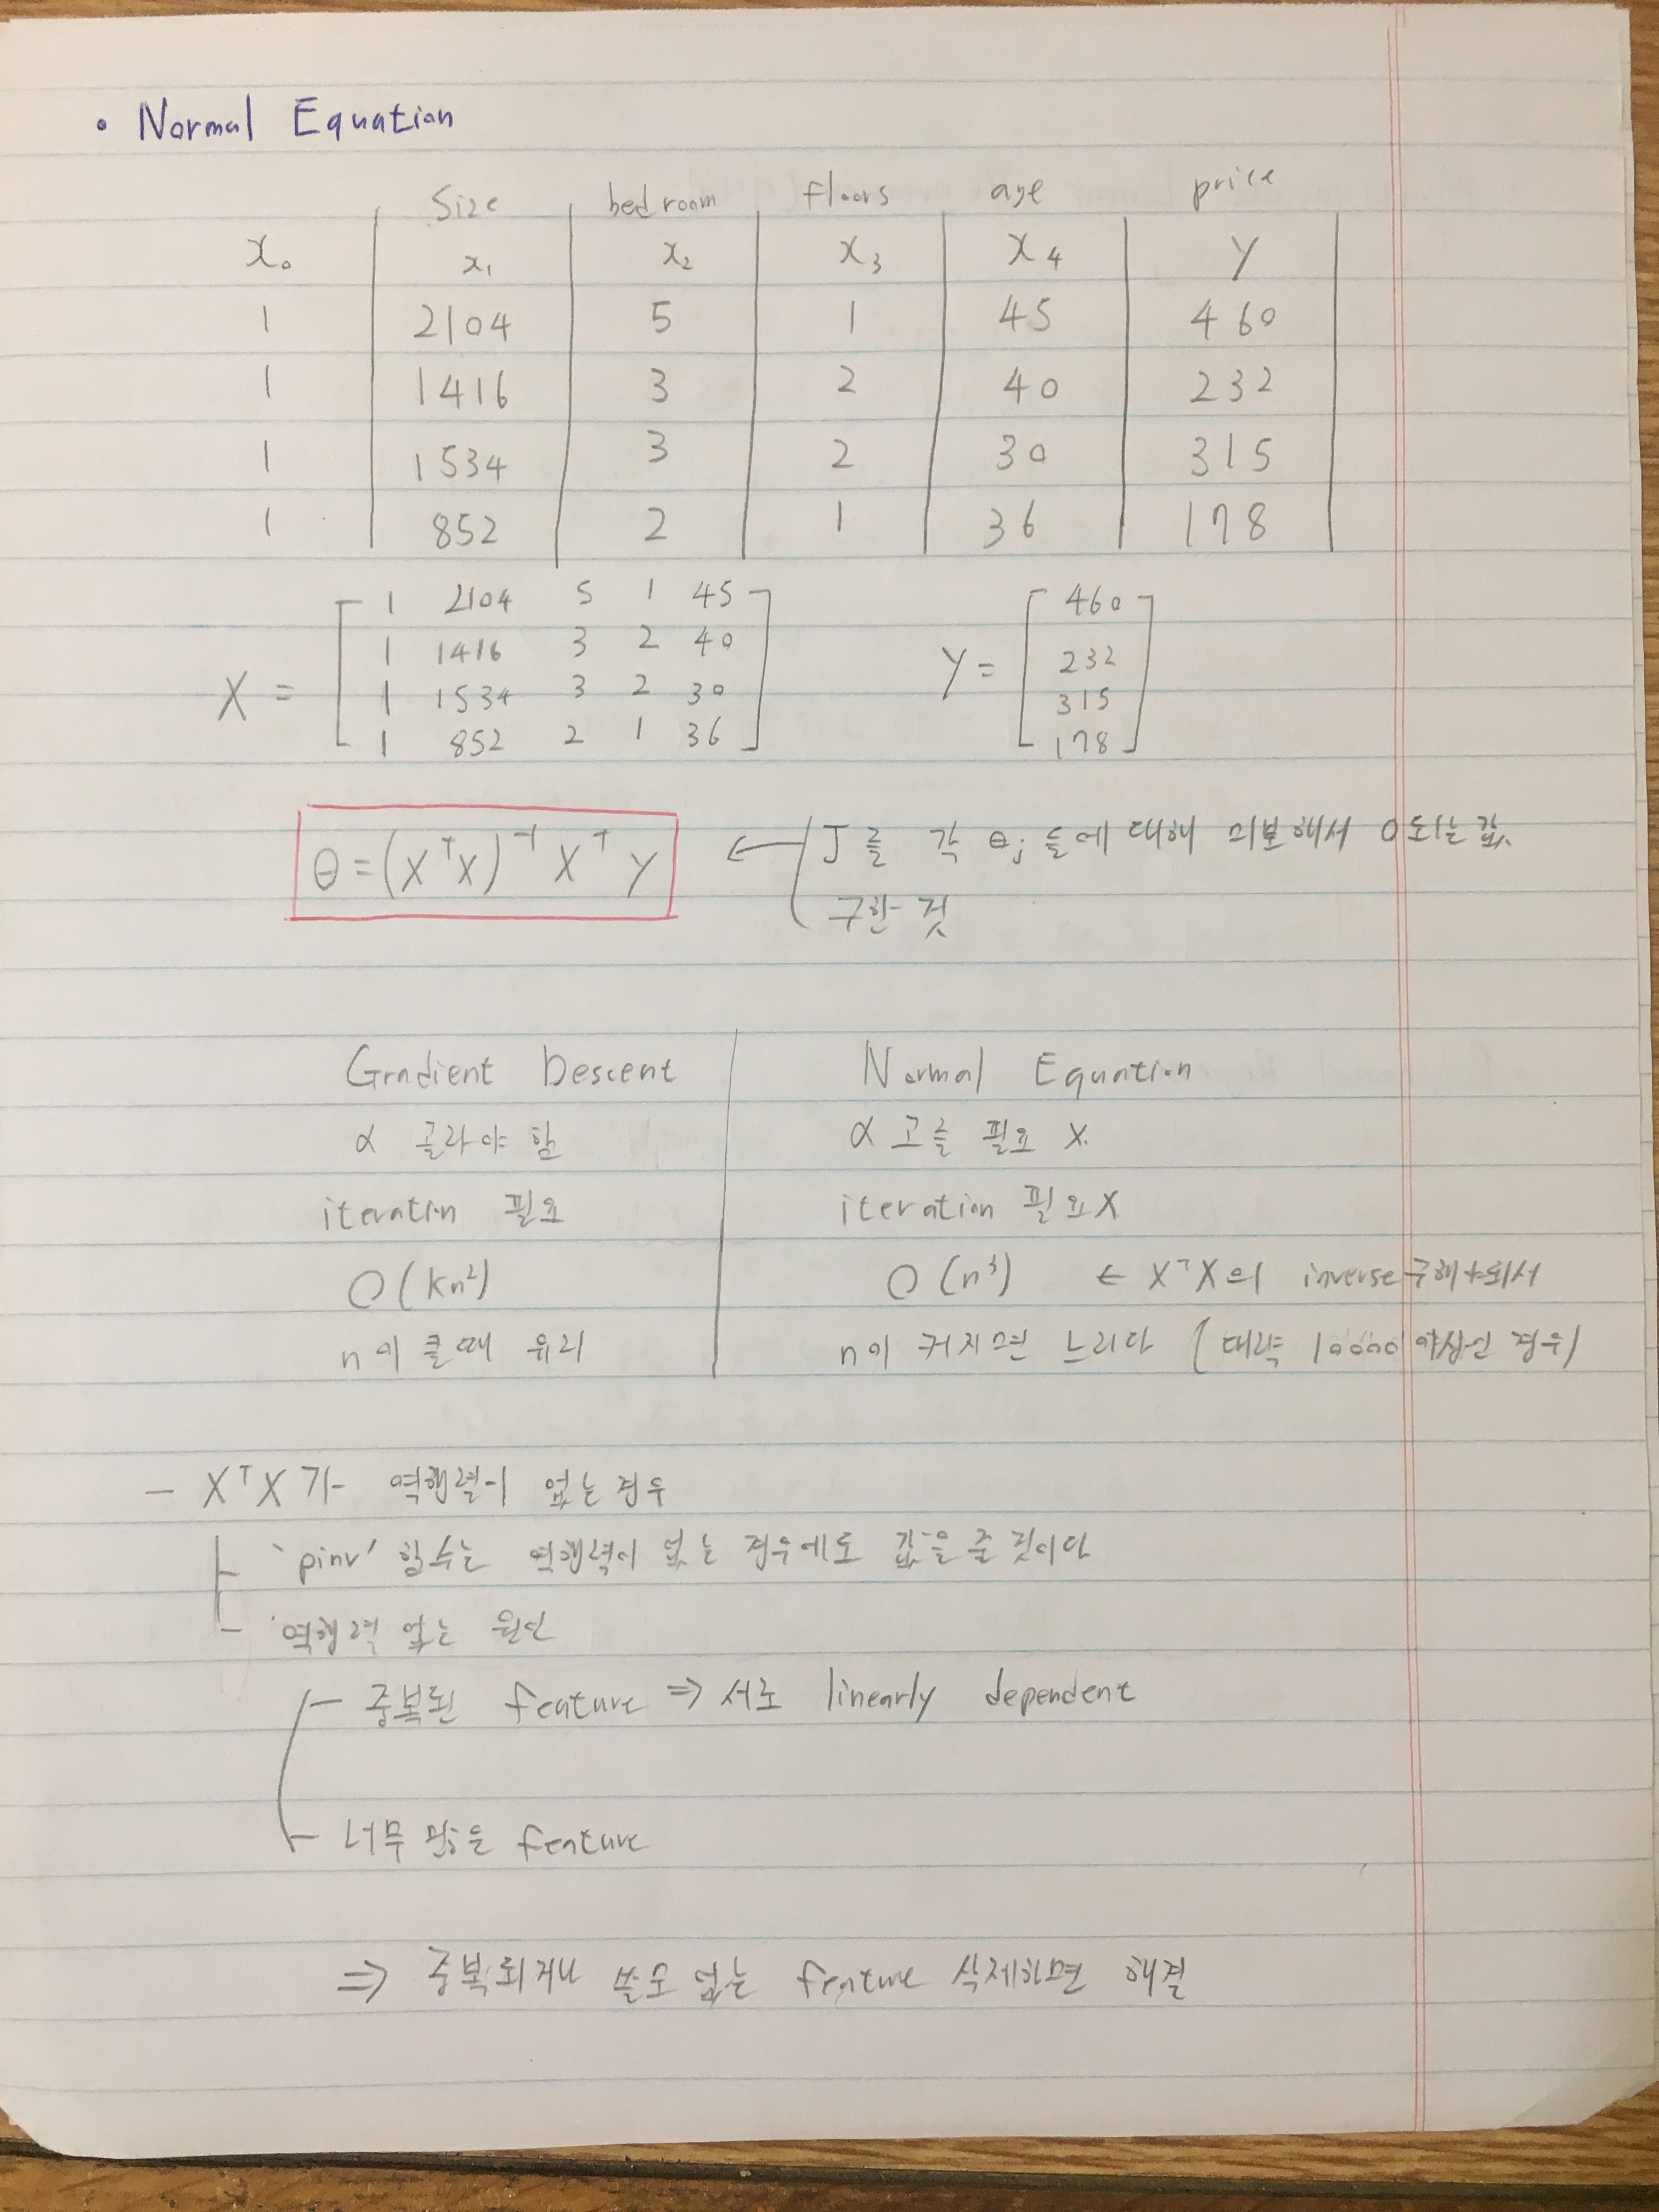 • Normal Equation
size bedroom floors age price
x₀ x₁ x₂ x₃ x₄ y
1 2104 5 1 45 460
1 1416 3 2 40 232
1 1534 3 2 30 315
1 852 2 1 36 178
X = [ 1 2104 5 1 45
1 1416 3 2 40
1 1534 3 2 30
1 852 2 1 36 ]
Y = [ 460
232
315
178 ]
θ = (XᵀX)⁻¹ Xᵀ y
← J를 각 θⱼ 들에 대해 미분해서 0되는 값
구한 것
Gradient Descent | Normal Equation
α 골라야 함 | α 고를 필요 X.
iteration 필요 | iteration 필요 X
O(kn²) | O(n³) ← XᵀX의 inverse 구해야되서
n이 클때 유리 | n이 커지면 느리다 (대략 10000 이상인 경우)
- XᵀX가 역행렬이 없는 경우
- 'pinv' 함수는 역행렬이 없는 경우에도 값을 줄 것이다
- 역행렬 없는 원인
- 중복된 feature ⇒ 서로 linearly dependent
- 너무 많은 feature
⇒ 중복되거나 쓸모 없는 feature 삭제하면 해결